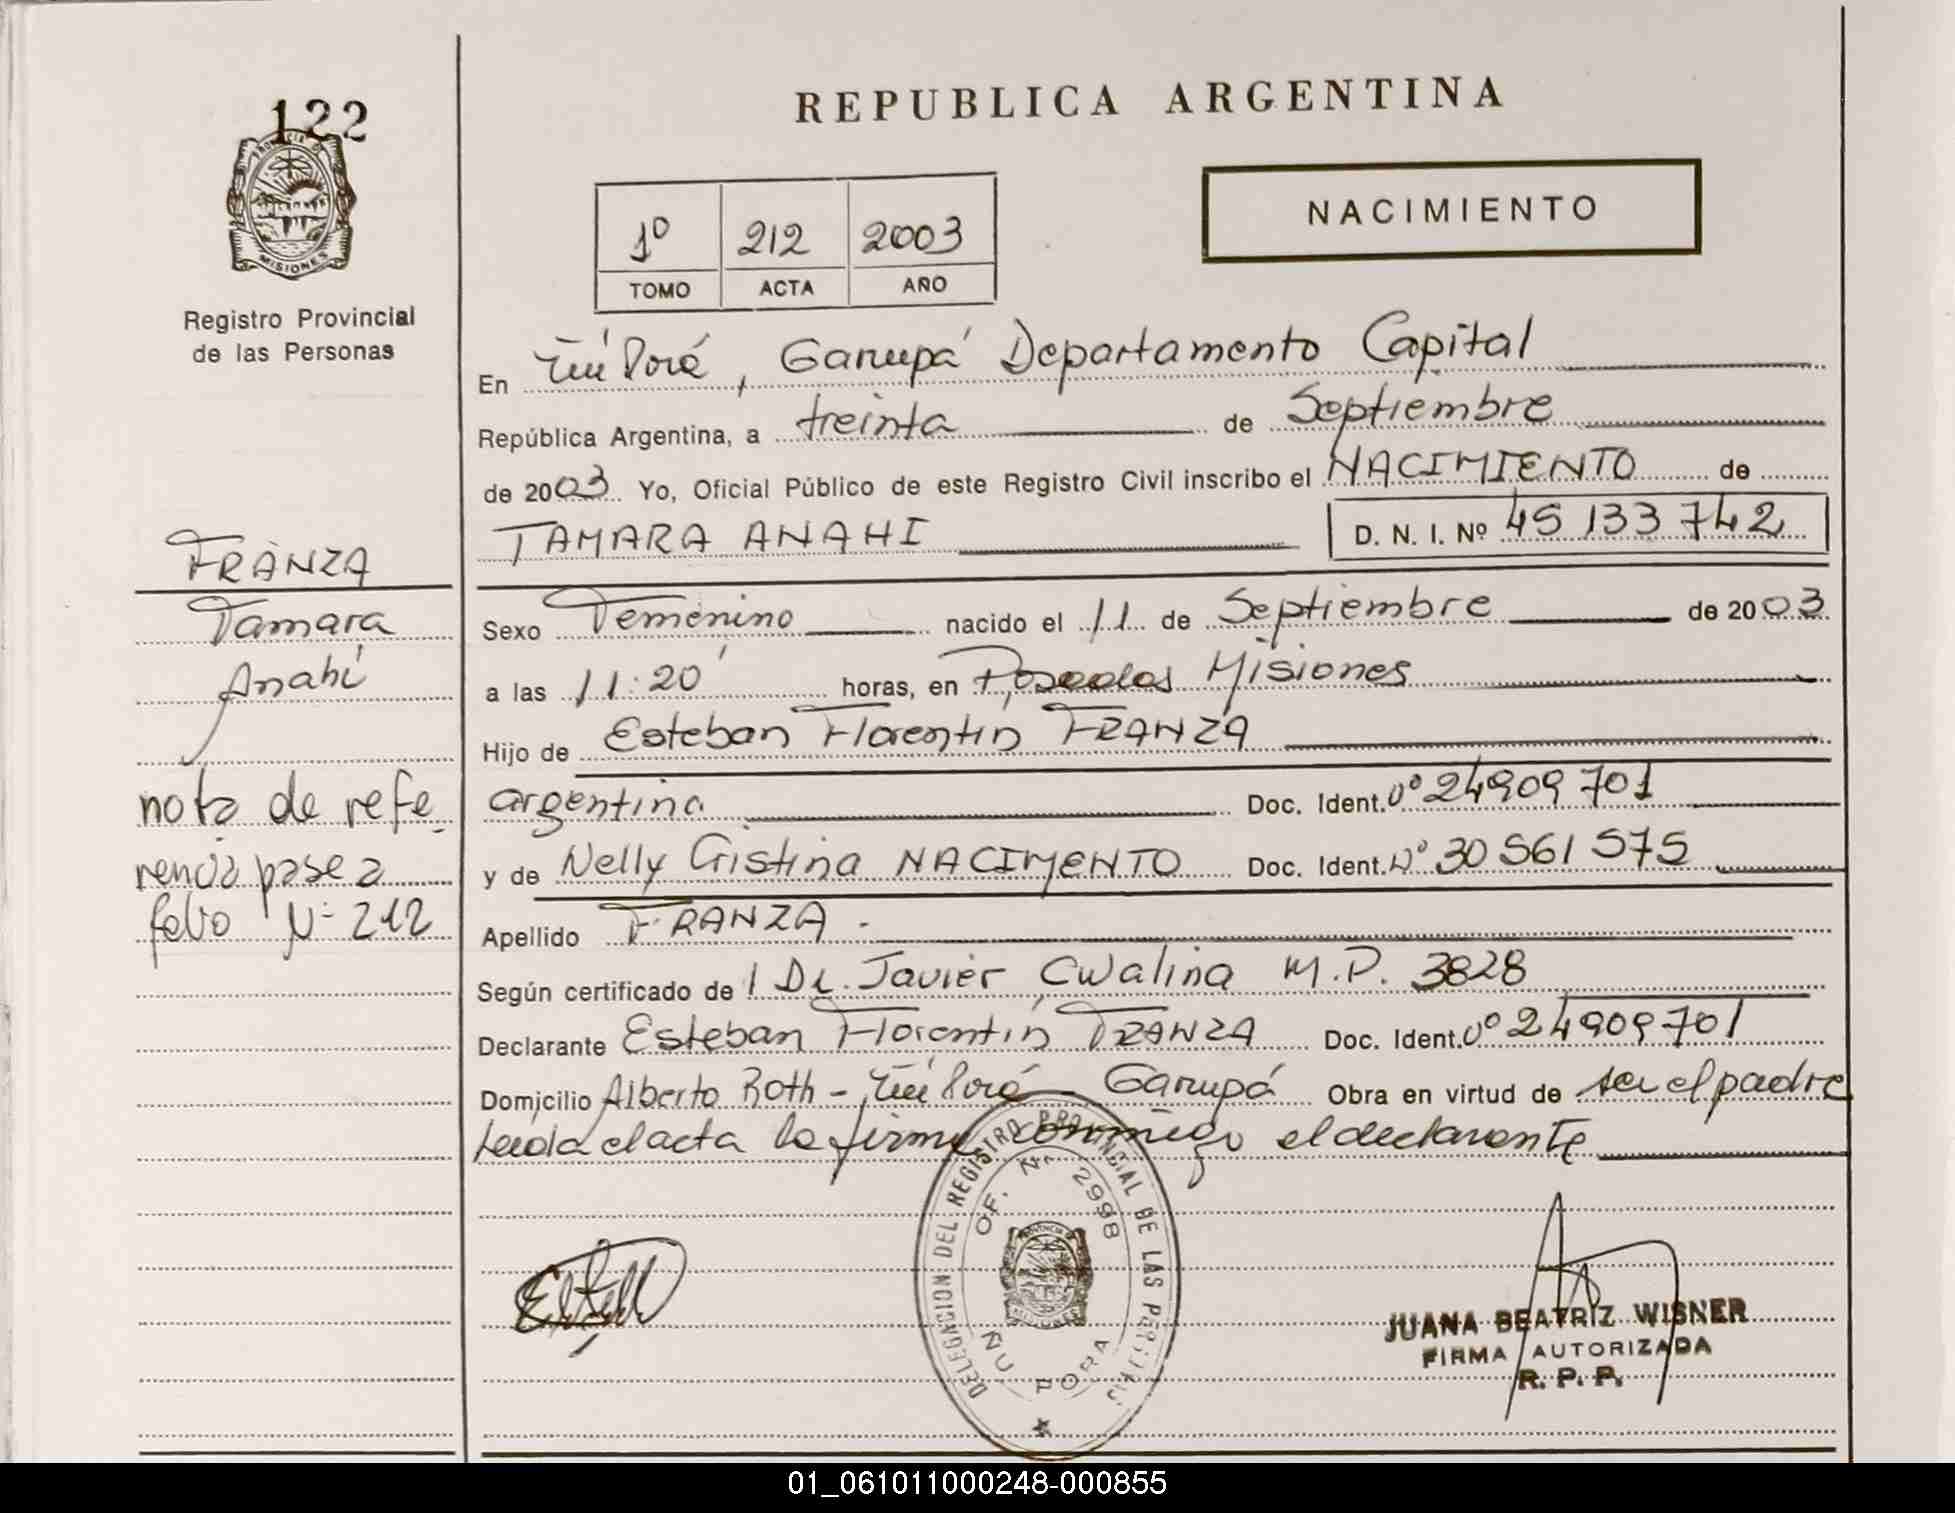 122
PROVINCIA D
MISIONES
Registro Provincial
de las Personas
REPUBLICA ARGENTINA
NACIMIENTO
1º 212 2003
TOMO ACTA AÑO
En Ñu Porá, Garupá Departamento Capital
República Argentina, a treinta de Septiembre
de 2003 Yo, Oficial Público de este Registro Civil inscribo el NACIMIENTO de
TAMARA ANAHI D. N. I. Nº 45 133 742
FRANZA
Tamara
Anahí
nota de refe
rencia pase a
folio Nº 212
Sexo Femenino nacido el 11 de Septiembre de 2003
a las 11:20 horas, en Posadas Misiones
Hijo de Esteban Florentin FRANZA
argentina Doc. Ident. Nº 24909 701
y de Nelly Cristina NACIMENTO Doc. Ident. Nº 30 561 575
Apellido FRANZA
Según certificado de Dr. Javier Cwalina M.P. 3828
Declarante Esteban Florentín FRANZA Doc. Ident. Nº 24909701
Domicilio Alberto Roth - Ñu Porá - Garupá Obra en virtud de ser el padre
Leida el acta la firma conmigo el declarante
DELEGACION DEL REGISTRO PROVINCIAL DE LAS PERSONAS
OF. Nº 2998
ÑU PORA
JUANA BEATRIZ WISNER
FIRMA AUTORIZADA
R. P. P.
01_061011000248-000855